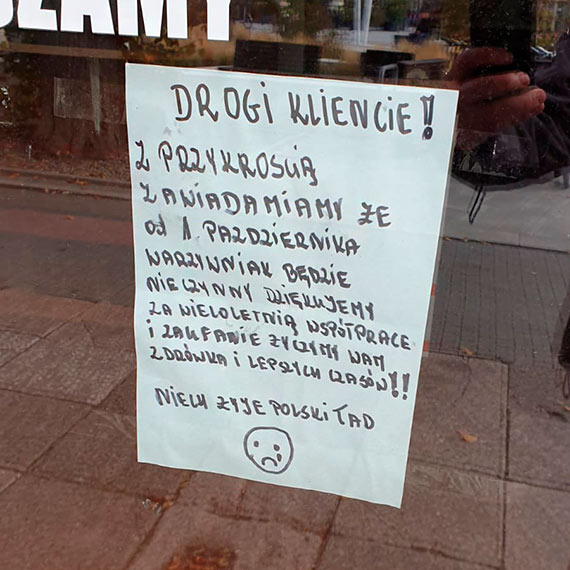 SZAMY
DROGI KLIENCIE!
Z PRZYKROSCIĄ
ZAWIADAMIAMY ŻE
od 1 PAŹDZIERNIKA
WARZYWNIAK BĘDZIE
NIECZYNNY DZIĘKUJEMY
ZA WIELOLETNIĄ WSPÓŁPRACE
I ZAUFANIE ŻYCZYMY WAM
ZDRÓWKA I LEPSZYCH CZASÓW!!
NIECH ŻYJE POLSKI ŁAD